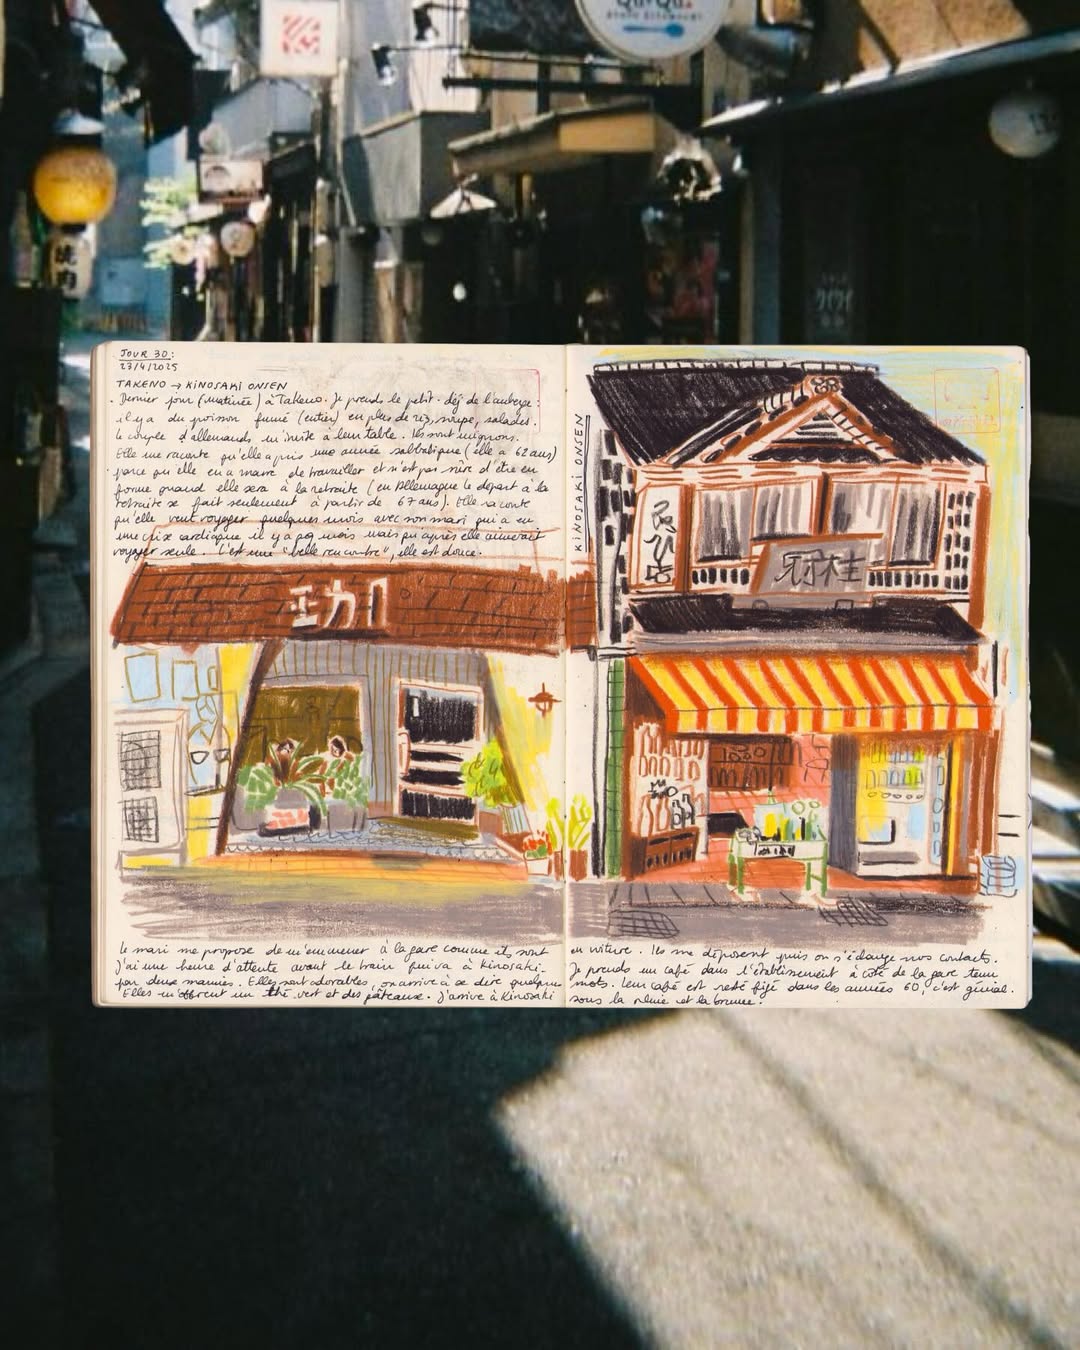 QuiQui.
焼肉
JOUR 30:
23/4/2025
TAKENO → KINOSAKI ONSEN
Dernier jour (matinée) à Takeno. Je prends le petit-déj de l'auberge:
il y a du poisson fumé (entier) en plus de riz, soupe, salades.
Le couple d'allemands m'invite à leur table. Ils sont mignons.
Elle me raconte qu'elle a pris une année sabbatique (elle a 62 ans)
parce qu'elle en a marre de travailler et n'est pas sûre d'être en
forme quand elle sera à la retraite (en Allemagne le départ à la
retraite se fait seulement à partir de 67 ans). Elle raconte
qu'elle veut voyager quelques mois avec son mari qui a eu
une crise cardiaque il y a mois mais qu'après elle aimerait
voyager seule. C'est une "belle rencontre", elle est douce.
KINOSAKI ONSEN
Le mari me propose de m'emmener à la gare comme ils sont en voiture. Ils me déposent puis on s'échange nos contacts.
J'ai une heure d'attente avant le train qui va à Kinosaki. Je prends un café dans l'établissement à côté de la gare tenu
par deux mamies. Elles sont adorables, on arrive à se dire quelques mots. Leur café est resté figé dans les années 60, c'est génial.
Elles m'offrent un thé vert et des gâteaux. J'arrive à Kinosaki sous la pluie et la brume.